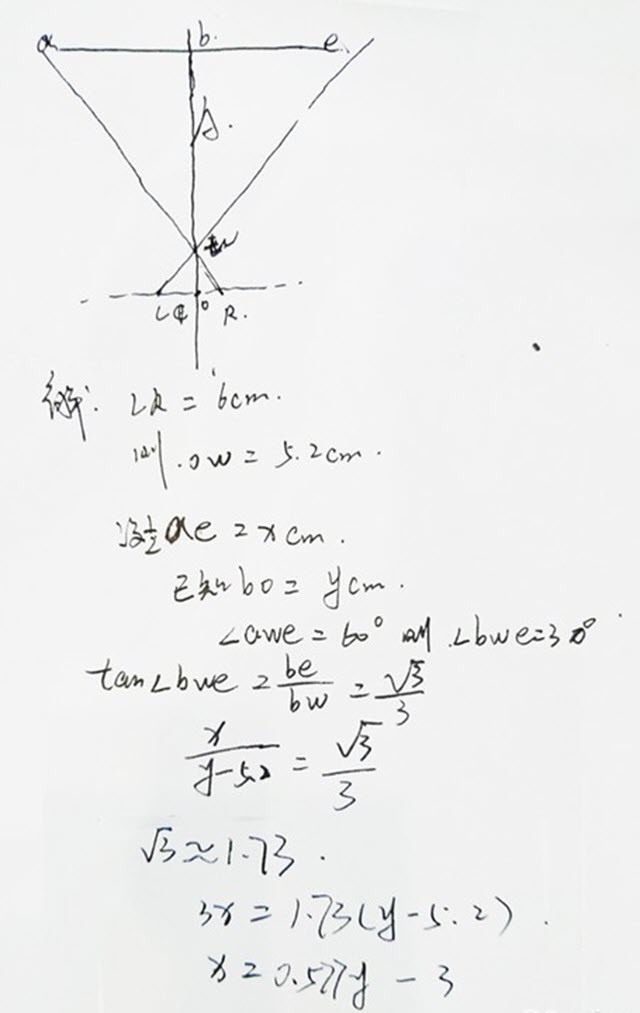 a b. e
S.
w
L O R.
解: LR = 6cm.
则. ow = 5.2cm.
设ae = xcm.
已知bo = ycm.
∠awe = 60° 则 ∠bwe=30°
tan∠bwe = be/bw = √3/3
x/(y-5.2) = √3/3
√3≈1.73.
3x = 1.73(y-5.2).
x = 0.577y - 3